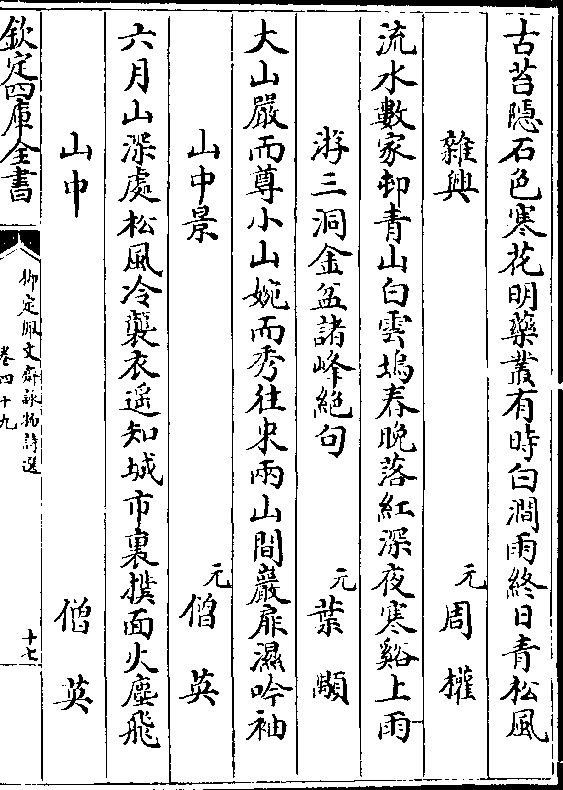 古苔隱石色寒花明藥叢有時白澗雨終日青松風
雜興 元周權
流水數家邨青山白雲塢春晩落紅深夜寒谿上雨
游三洞金盆諸峰絶句 元葉顒
大山嚴而尊小山婉而秀往来兩山間巖扉濕吟袖
山中景 元僧英
六月山深處松風冷襲衣遥知城市裏撲面火塵飛
山中 僧英
欽定四庫全書
御定佩文齋詠物詩選
卷四十九
十七